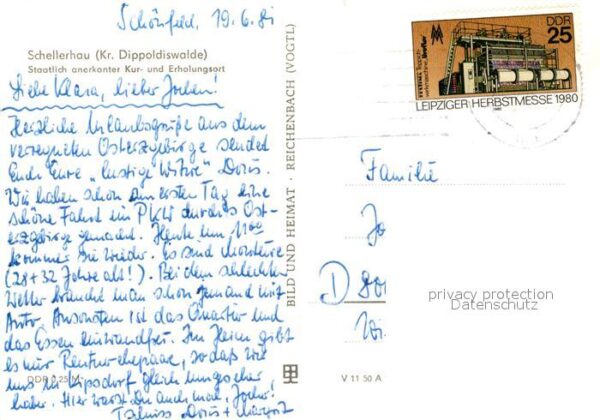 Schönfeld, 19.6.81
Schellerhau (Kr. Dippoldiswalde)
Staatlich anerkannter Kur- und Erholungsort
Liebe Klara, lieber Jochen!
Herzliche Urlaubsgrüße aus dem
verregneten Osterzgebirge sendet
Euch Eure "lustige Witwe" Doris.
Wir haben schon am ersten Tag eine
schöne Fahrt im PKW durchs Ost-
erzgebirge gemacht. Heute um 11⁰⁰
kommen sie wieder. Es sind
(28 + 32 Jahre alt!). Bei dem schlechten
Wetter braucht man schon jemand mit
Auto. Ansonsten ist das Quartier und
das Essen einwandfrei. Im Heim gibt
es nur Rentnerehepaare, so daß wir
uns in Kipsdorf gleich umgesehen
haben. Hier warst Du auch mal, Jochen!
Tschüss Doris + Margot
DDR 0,25 M
BILD UND HEIMAT · REICHENBACH (VOGTL)
V 11 50 A
DDR
25
LEIPZIGER HERBSTMESSE 1980
Familie
Jo
D 801
privacy protection
Datenschutz